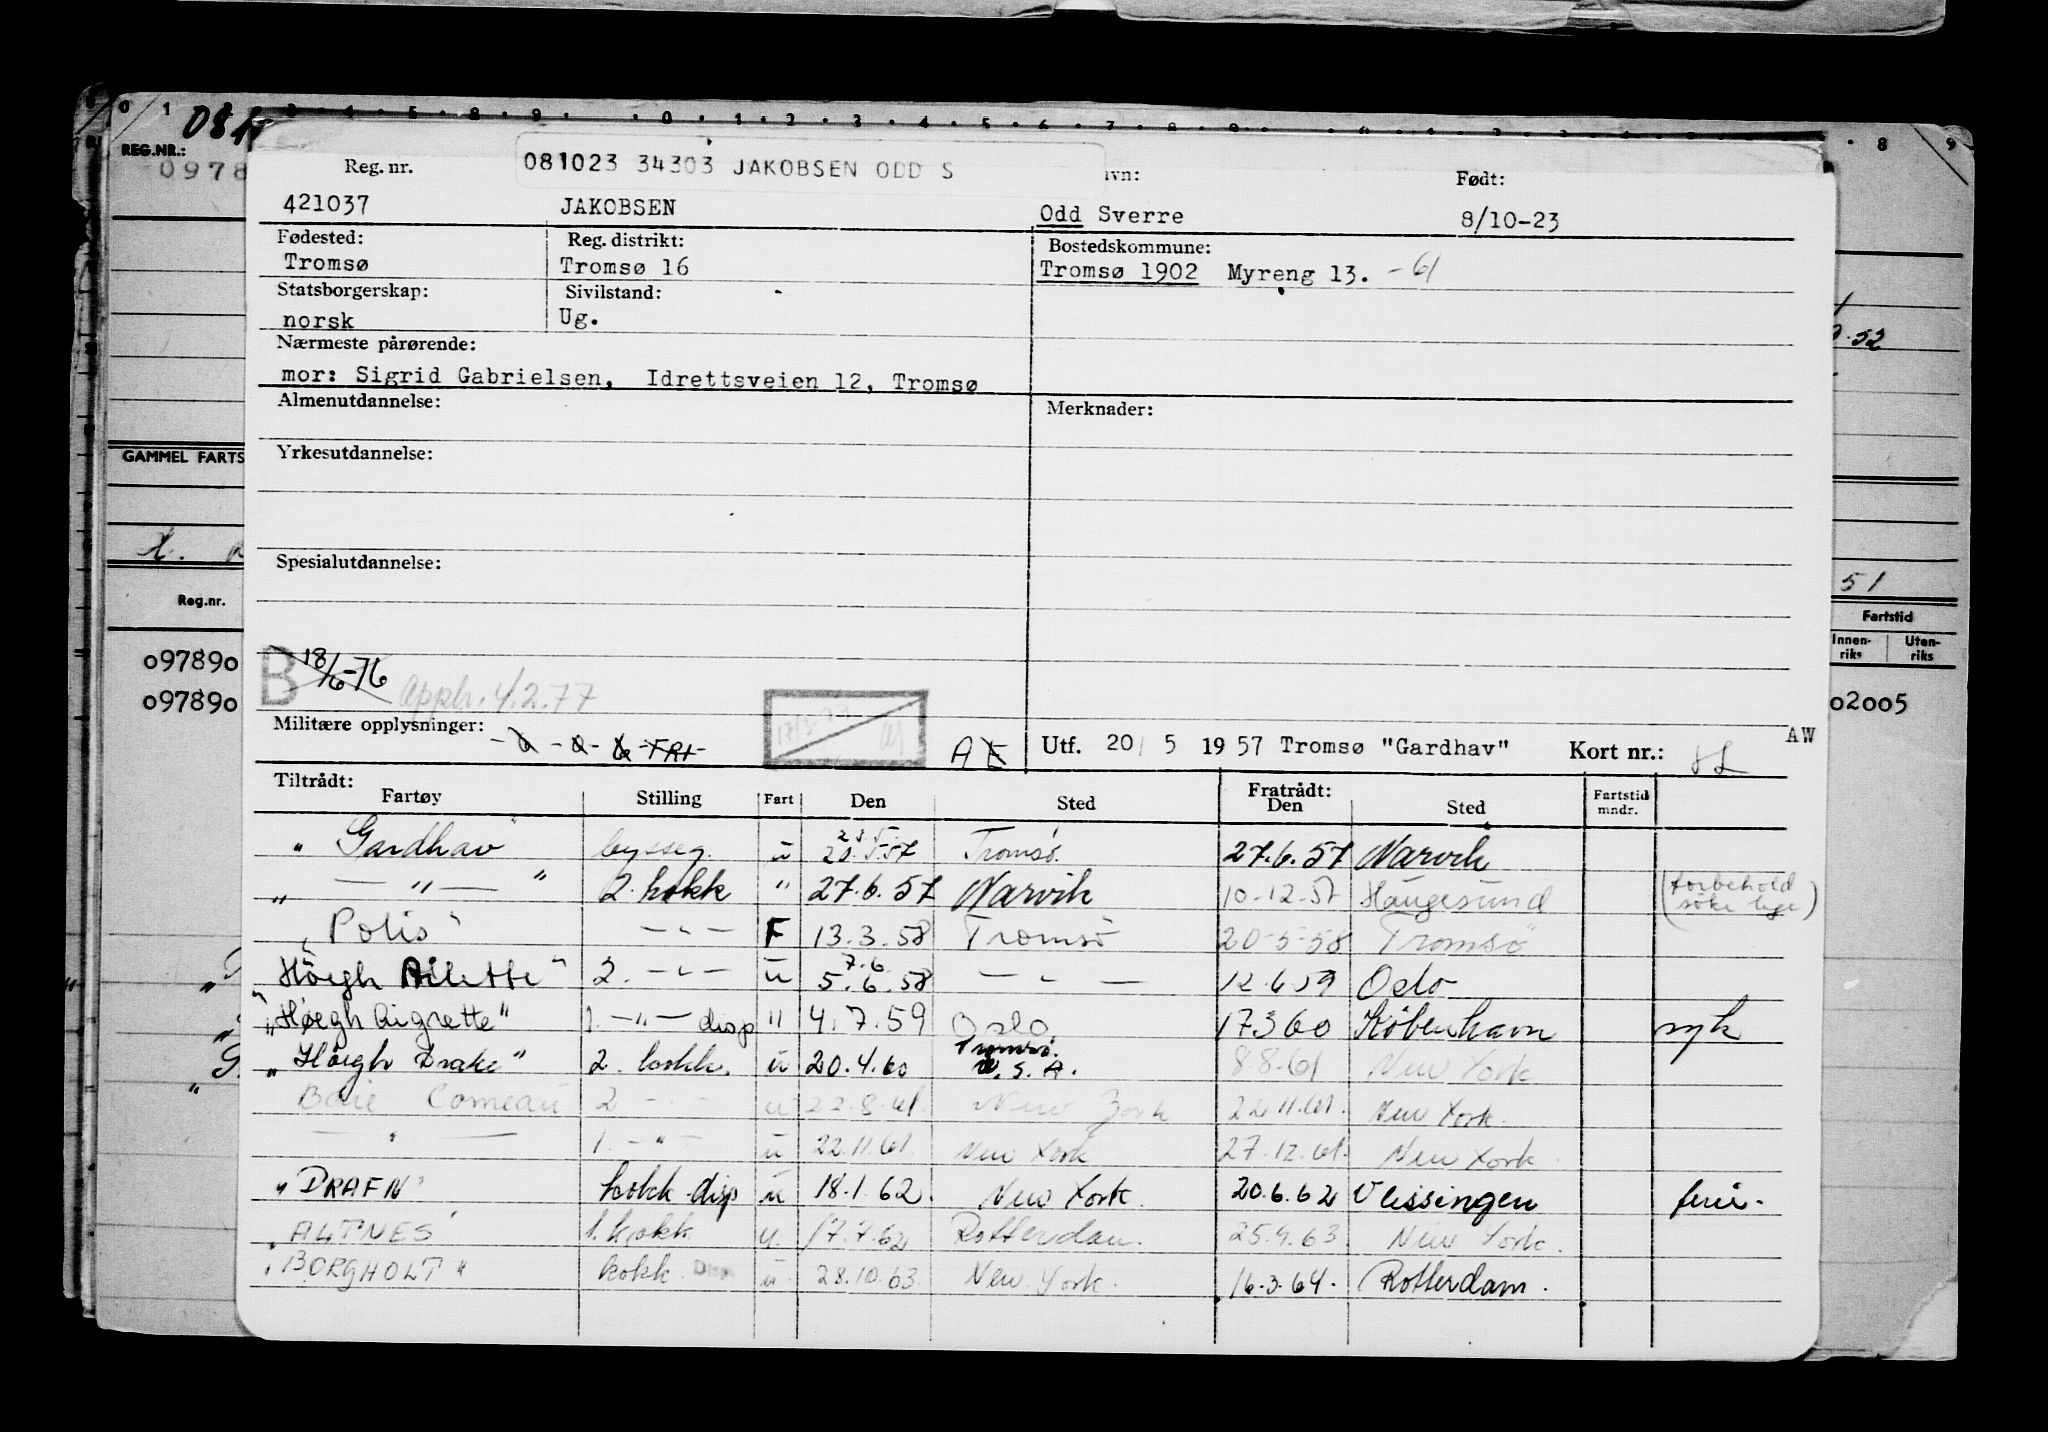 0 1 3 4 5 8 9 0 1 2 3 4 5 6 7 8 9 8 9
REG.NR.:
0978
Reg. nr. 081023 34303 JAKOBSEN ODD S vn: Født:
421037 JAKOBSEN Odd Sverre 8/10-23
Fødested: Reg. distrikt: Bostedskommune:
Tromsø Tromsø 16 Tromsø 1902 Myreng 13. -61
Statsborgerskap: Sivilstand:
norsk Ug.
Nærmeste pårørende: .52
mor: Sigrid Gabrielsen, Idrettsveien 12, Tromsø
Almenutdannelse: Merknader:
GAMMEL FARTS Yrkesutdannelse:
Spesialutdannelse: 51
Reg.nr. Fartstid
Innen-riks Uten-riks
097890 B 18/6-76
097890 apph. 4.2.77 02005
Militære opplysninger: FRI A E Utf. 20/ 5 1957 Tromsø "Gardhav" Kort nr.: AW
Tiltrådt: Fratrådt: Fartstid
Fartøy Stilling Fart Den Sted Den Sted mndr.
"Gardhav" bysseg. u 20.5.57 Tromsø. 27.6.57 Narvik
" — " — " 2. kokk " 27.6.57 Narvik 10.12.57 Haugesund (forbehold søke lege)
"Polis" — " — F 13.3.58 Tromsö 20-5-58 Tromsö
Höegh Ailette" 2. — " — u 7.6. 5.6.58 — " — 12.6.59 Oslo
"Høegh Aigrette" 1. — " — disp " 4.7.59 Oslo 17360 København syk
"Höegh Drake" 2. kokk. u 20.4.60 Tromsø. U.S.A. 8.8.61 New York
Baie Comeau 2 — " — u 22.8.61. New York 22.11.61. New York.
— " — 1. — " — u 22.11.61. New York 27.12.61. New York.
"DRAFN" kokk disp u 18.1.62. New York. 20.6.62 Vlissingen ferie.
"ALTNES" 1. kokk u. 17.7.62 Rotterdam. 25.9.63 New York.
"BORGHOLT" kokk Disp u. 28.10.63. New York. 16.3.64. Rotterdam.